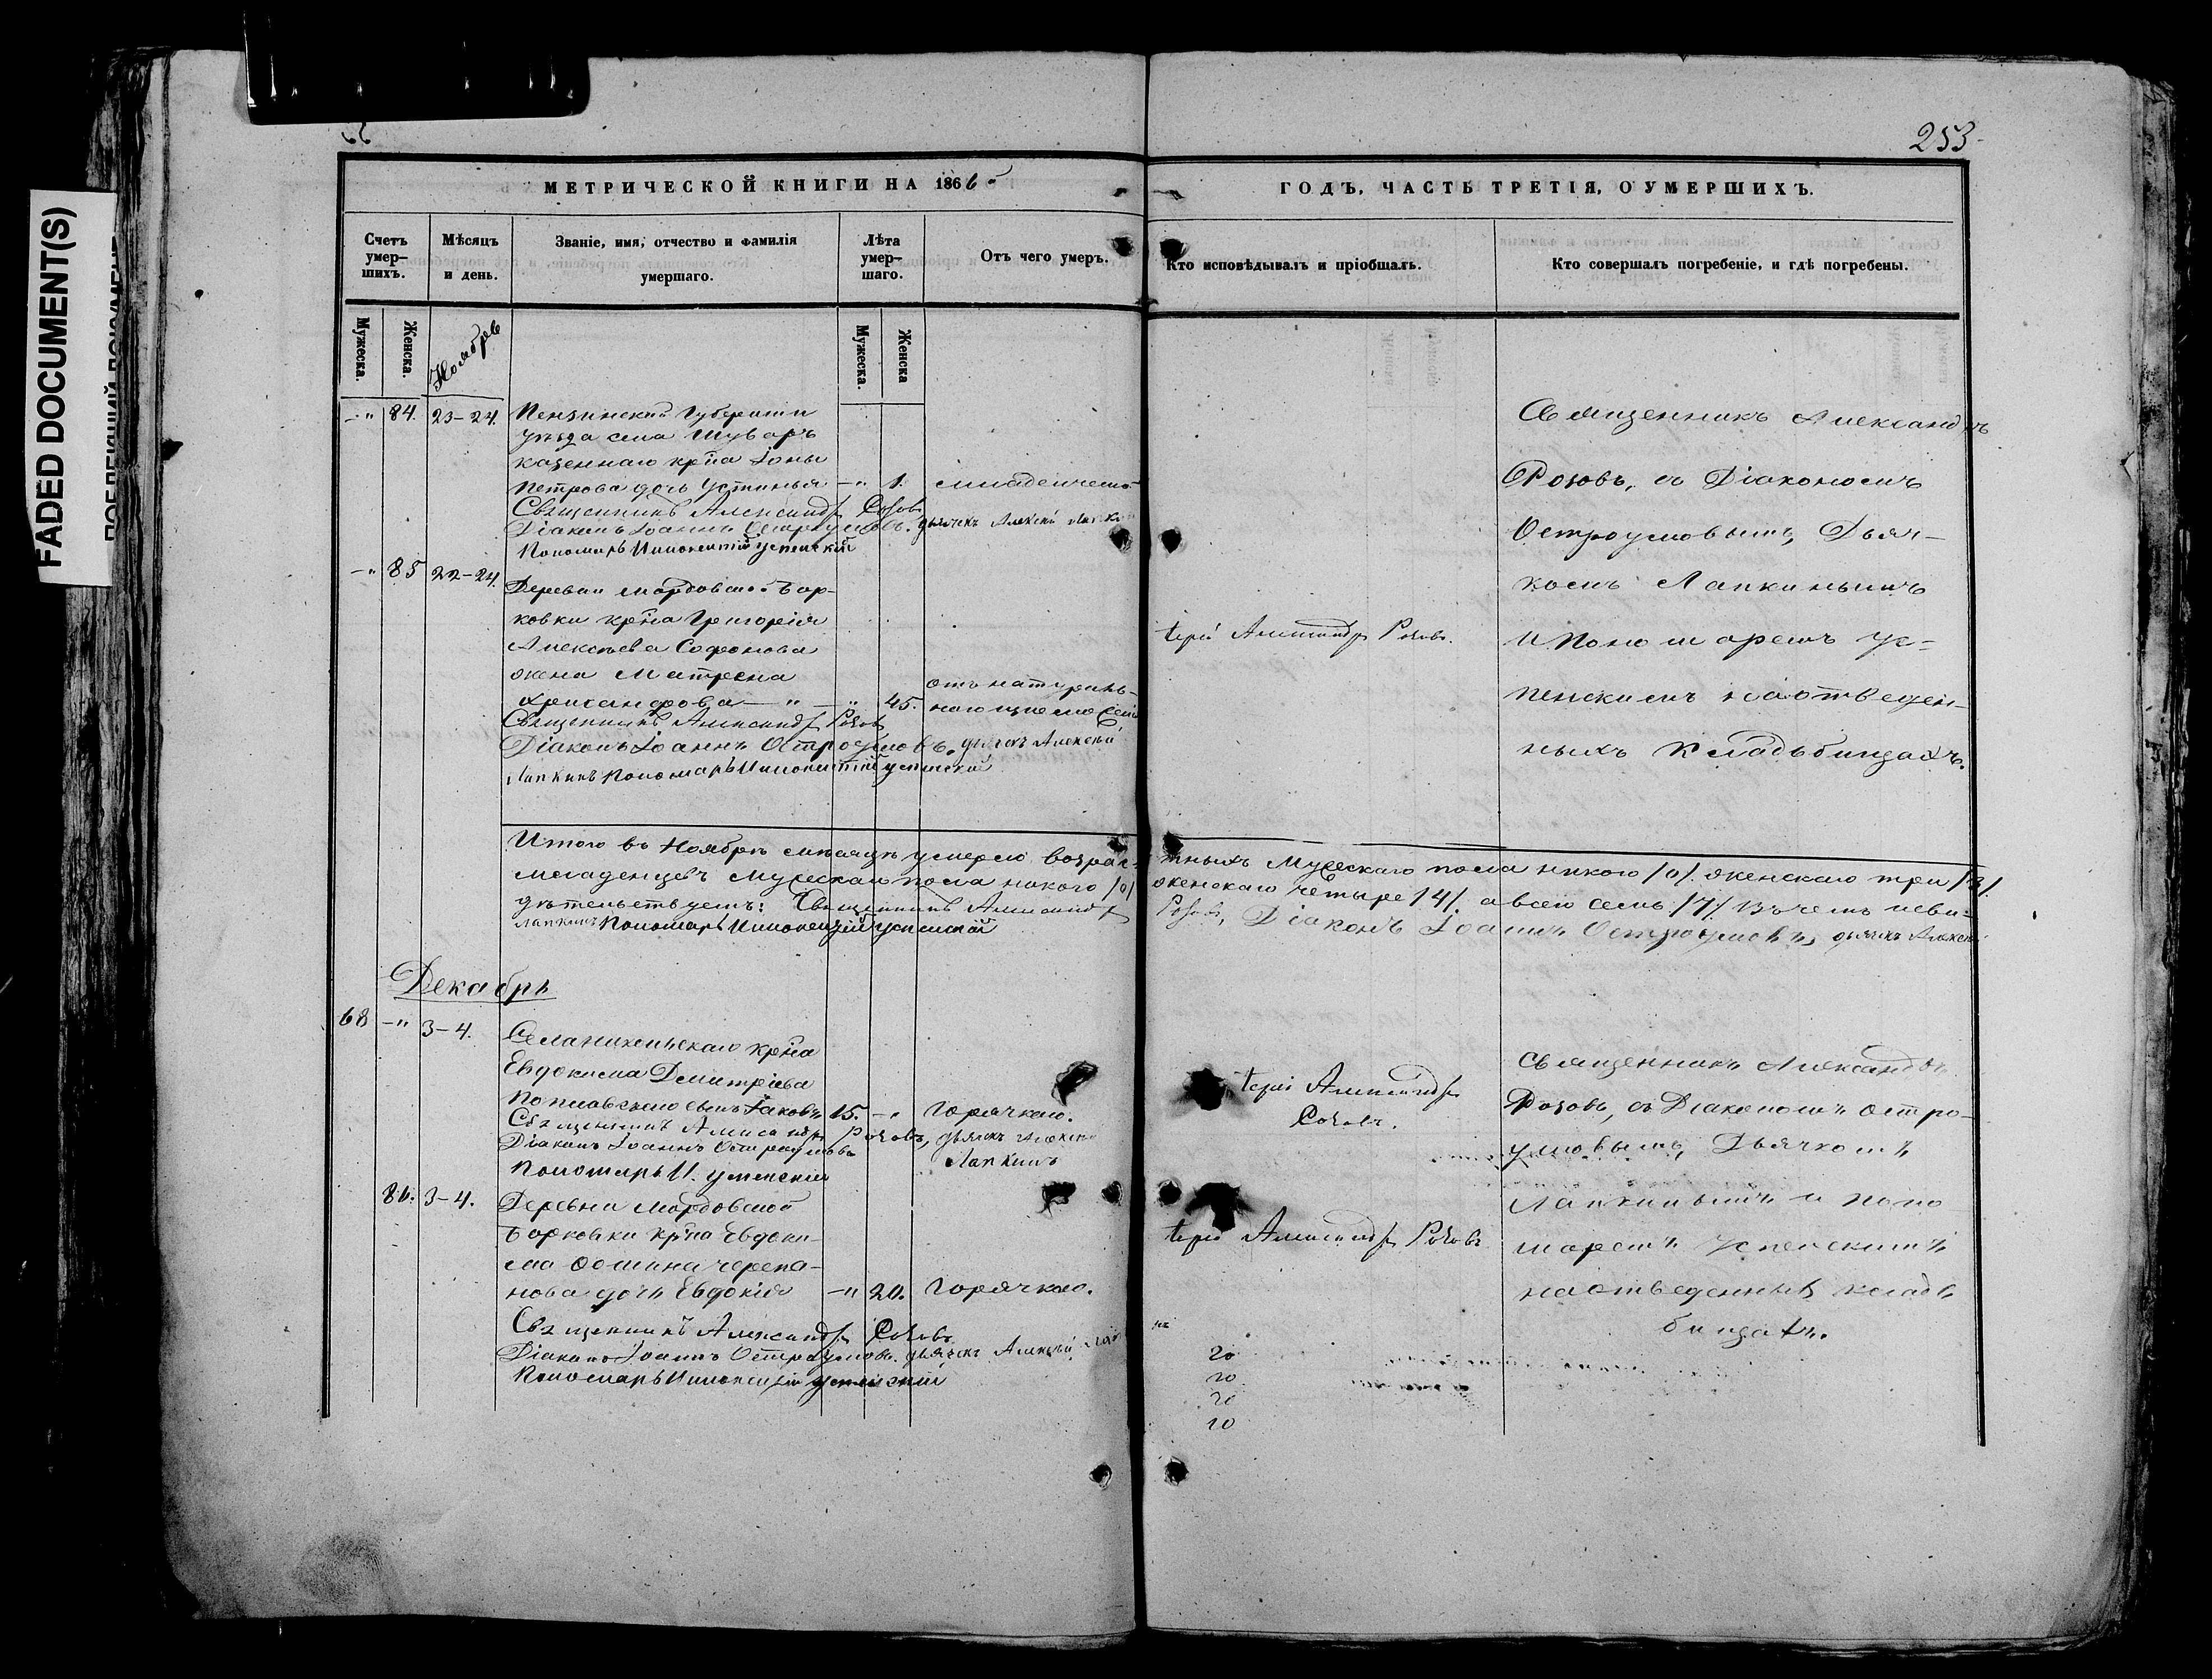 FADED DOCUMENT(S)
253
МЕТРИЧЕСКОЙ КНИГИ НА 1866
ГОДЪ, ЧАСТЬ ТРЕТІЯ, О УМЕРШИХЪ.
Счетъ умер-шихъ.
Мѣсяцъ и день.
Званіе, имя, отчество и фамилія умершаго.
Лѣта умер-шаго.
Отъ чего умеръ.
Кто исповѣдывалъ и пріобщалъ.
Кто совершалъ погребеніе, и гдѣ погребены.
Мужеска.
Женска.
Ноябрь
Мужеска.
Женска
84. 23-24. Пензинской Губерніи
уѣзда села Шуваръ
казеннаго крѣ̃на Іоны
Петрова дочь Устинья 1.
Священникъ Александръ Розовъ
Діаконъ Іоаннъ Остроумовъ. дьячекъ Алексѣй
Пономарь Иннокентій Успенскій
Священникъ Александръ
Розовъ, съ Діакономъ
Остроумовымъ, Дьяч-
комъ Лапкинымъ
и Пономаремъ Ус-
пенскимъ на отведен-
ныхъ Кладьбищахъ.
85 22-24. Деревни Мордовской Бор-
ковки крѣ̃на Григорія
Алексѣева Софронова
жена Матрена
45. отъ натураль-
Священникъ Александръ Розовъ
Діаконъ Іоаннъ Остроумовъ. дьячекъ Алексѣй
Лапкинъ Пономарь Иннокентій Успенскій
Іерей Александръ Розовъ.
Итого въ Ноябрѣ мѣсяцѣ умерло возрас-
тныхъ Мужескаго пола никого /0/. женскаго три /3/.
младенцевъ Мужескаго пола никого /0/
женскаго четыре /4/. а всего семь /7/ Въ чемъ сви-
дѣтельствуемъ: Священникъ Александръ
Розовъ, Діаконъ Іоаннъ Остроумовъ, дьячекъ Алексѣй
Лапкинъ Пономарь Иннокентій Успенскій
Декабрь
68 3-4. крѣ̃на
Евдокима Дмитріева
сынъ Іаковъ 15. Горячкою.
Священникъ Александръ Розовъ, дьячекъ Алексѣй
Діаконъ Іоаннъ Остроумовъ
Лапкинъ
Пономарь И. Успенскій
Іерей Александръ
Розовъ.
Священникъ Александръ
Розовъ, съ Діакономъ Остро-
умовымъ, Дьячкомъ
Лапкинымъ и поно
маремъ Успенскимъ
на отведенныхъ кладь
бищахъ.
86. 3-4. Деревни Мордовской
Борковки крѣ̃на Евдоки-
ма Фомина Черепа-
нова дочь Евдокія 20. Горячкою.
Священникъ Александръ Розовъ
Діаконъ Іоаннъ Остроумовъ. дьячекъ Алексѣй
Пономарь Иннокентій Успенскій
Іерей Александръ Розовъ
20
20
20
20